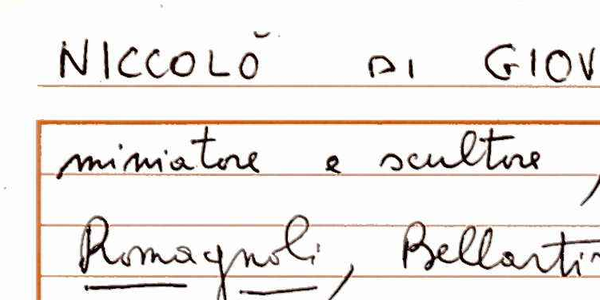 NICCOLÒ DI GIOV
miniatore e scultore,
Romagnoli, Bellarti